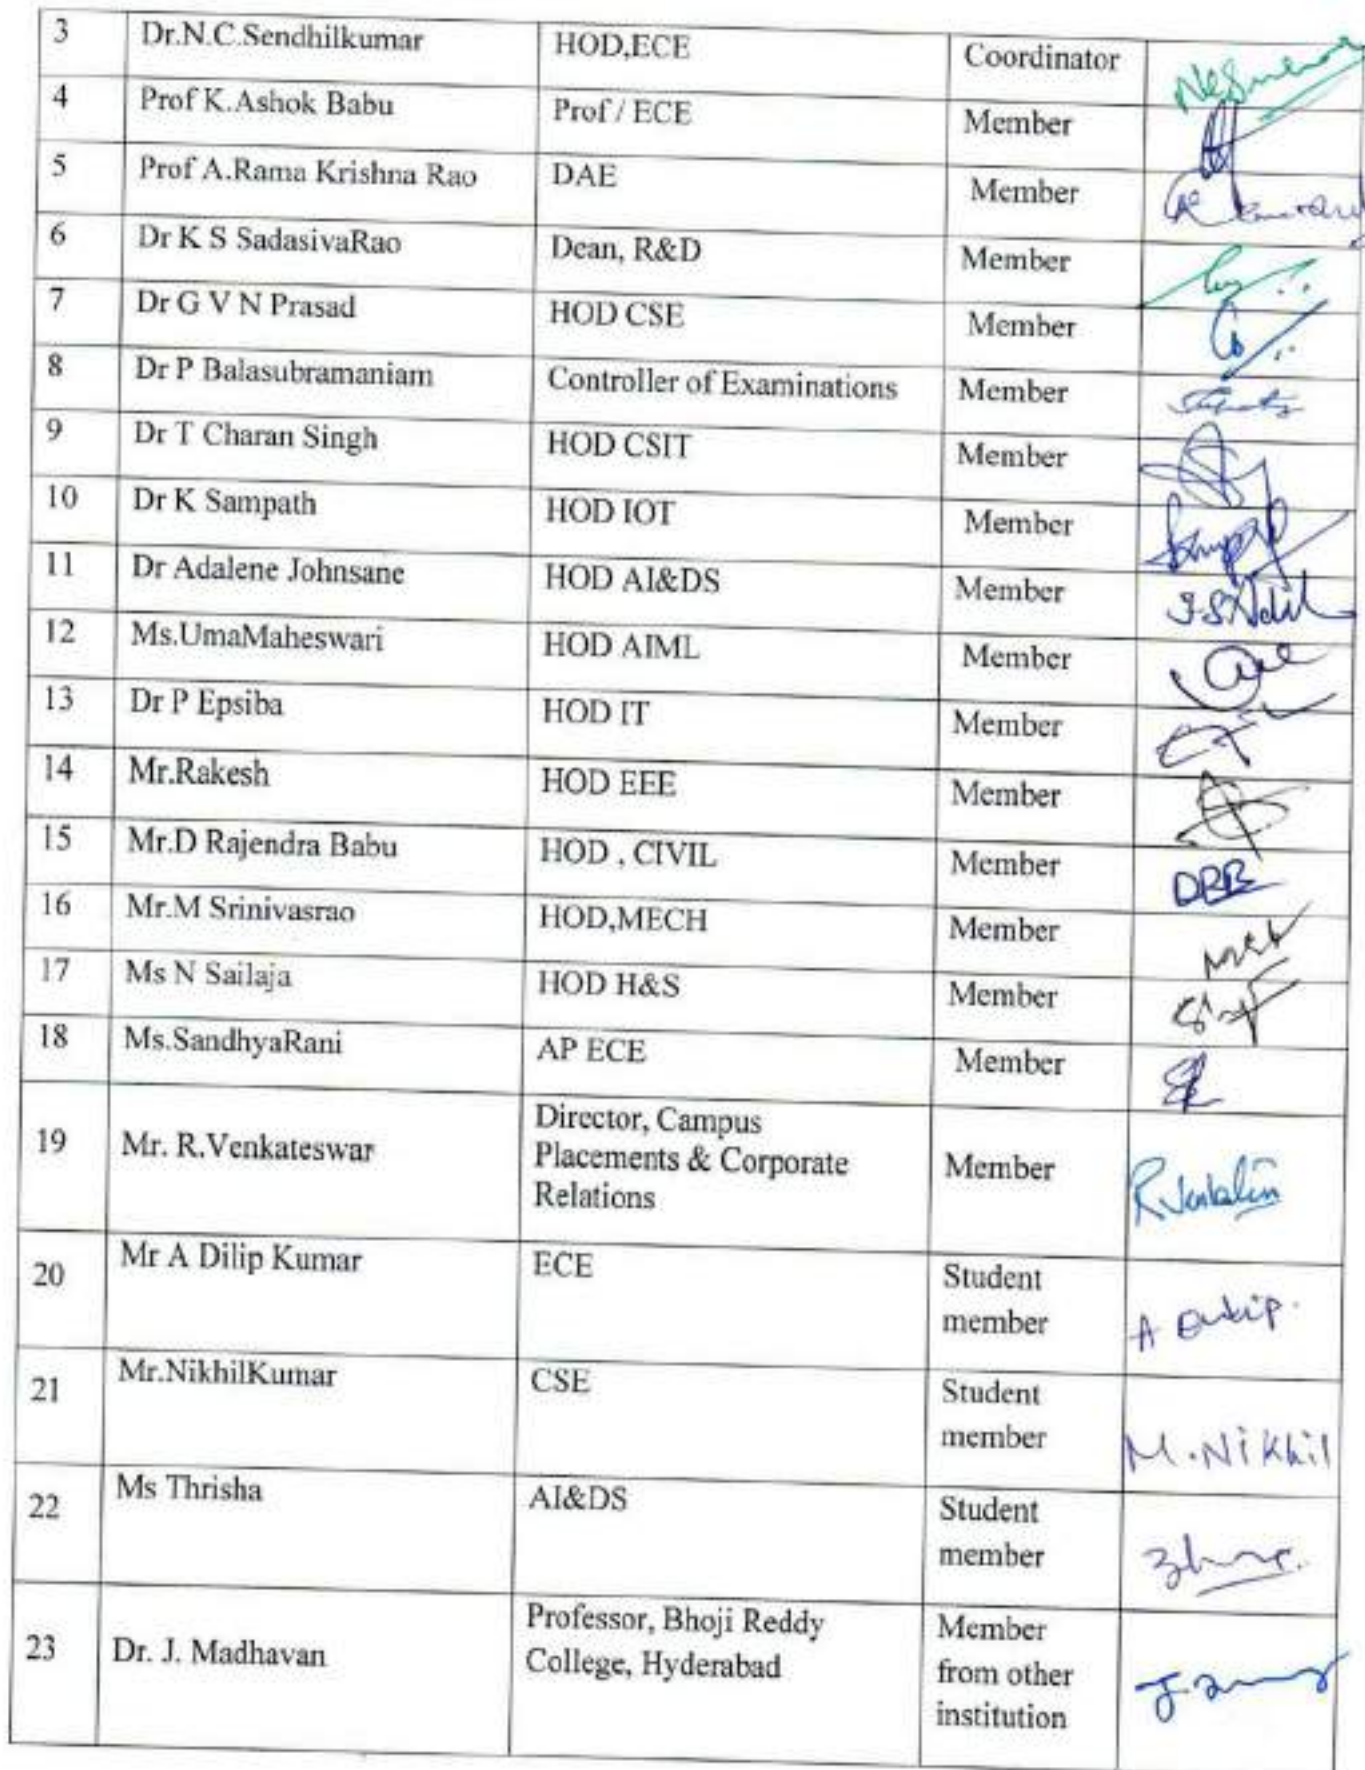 3 Dr.N.C.Sendhilkumar HOD,ECE Coordinator
4 Prof K.Ashok Babu Prof / ECE Member
5 Prof A.Rama Krishna Rao DAE Member
6 Dr K S SadasivaRao Dean, R&D Member
7 Dr G V N Prasad HOD CSE Member
8 Dr P Balasubramaniam Controller of Examinations Member
9 Dr T Charan Singh HOD CSIT Member
10 Dr K Sampath HOD IOT Member
11 Dr Adalene Johnsane HOD AI&DS Member
12 Ms.UmaMaheswari HOD AIML Member
13 Dr P Epsiba HOD IT Member
14 Mr.Rakesh HOD EEE Member
15 Mr.D Rajendra Babu HOD , CIVIL Member DRB
16 Mr.M Srinivasrao HOD,MECH Member
17 Ms N Sailaja HOD H&S Member
18 Ms.SandhyaRani AP ECE Member
Director, Campus
19 Mr. R.Venkateswar Placements & Corporate Member
Relations
20 Mr A Dilip Kumar ECE Student
member
21 Mr.NikhilKumar CSE Student
member M.Nikhil
22 Ms Thrisha AI&DS Student
member
Professor, Bhoji Reddy Member
23 Dr. J. Madhavan College, Hyderabad from other
institution